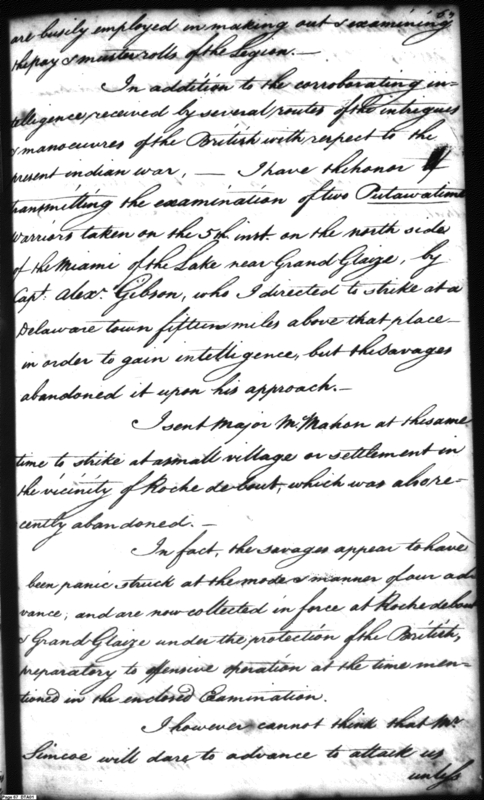 are busily employed in making out & examining
the pay & muster rolls of the Legion. —
In addition to the corroborating in-
telligence, received by several routes of the intrigues
& manoeuvres of the British with respect to the
present indian war, — I have the honor of
transmitting the examination of two Putawatime
Warriors taken on the 5th. inst. on the north side
of the Miami of the Lake near Grand Glaize, by
Capt. Alexr. Gibson, who I directed to strike at a
Delaware town fifteen miles above that place —
in order to gain intelligence, but the savages
abandoned it upon his approach. —
I sent Major McMahon at the same
time to strike at a small village or settlement in
the vicinity of Roche de bout, which was also re-
cently abandoned. —
In fact, the savages appear to have
been panic struck at the mode & manner of our ad-
vance, and are now collected in force at Roche de bout
& Grand Glaize under the protection of the British,
preparatory to offensive operation at the time men-
tioned in the enclosed Examination.
I however cannot think that Mr.
Simcoe will dare to advance to attack us
unless